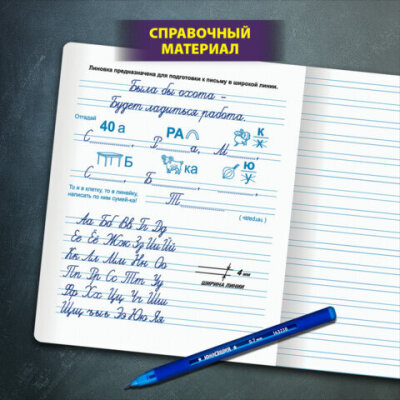 СПРАВОЧНЫЙ
МАТЕРИАЛ
Линовка предназначена для подготовки к письму в широкой линии.
Была бы охота –
Будет ладиться работа.
Отгадай
40 а
РА
К
Х
С , Р а, М ,
Б
ка
Ю
Х
С , Б , ,
То я в клетку, то в линейку,
написать по ним сумей-ка!
Т
Аа Бб Вв Гг Дд
Ее Ёё Жж Зз Ии Йй
Кк Лл Мм Нн Оо
Пп Рр Сс Тт Уу
Фф Хх Цц Чч Шш
Щщ ъ ы ь Ээ Юю Яя
4 мм
ШИРИНА ЛИНИИ
ЮНЛАНДИЯ
0,7 мм